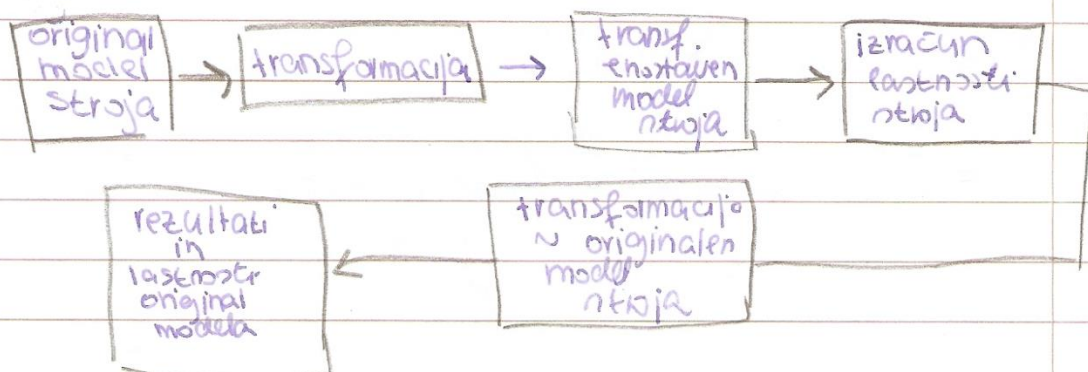 original
model
stroja
transformacija
transf.
enostaven
model
stroja
izračun
lastnosti
stroja
transformacija
v originalen
model
stroja
rezultati
in
lastnosti
original
modela